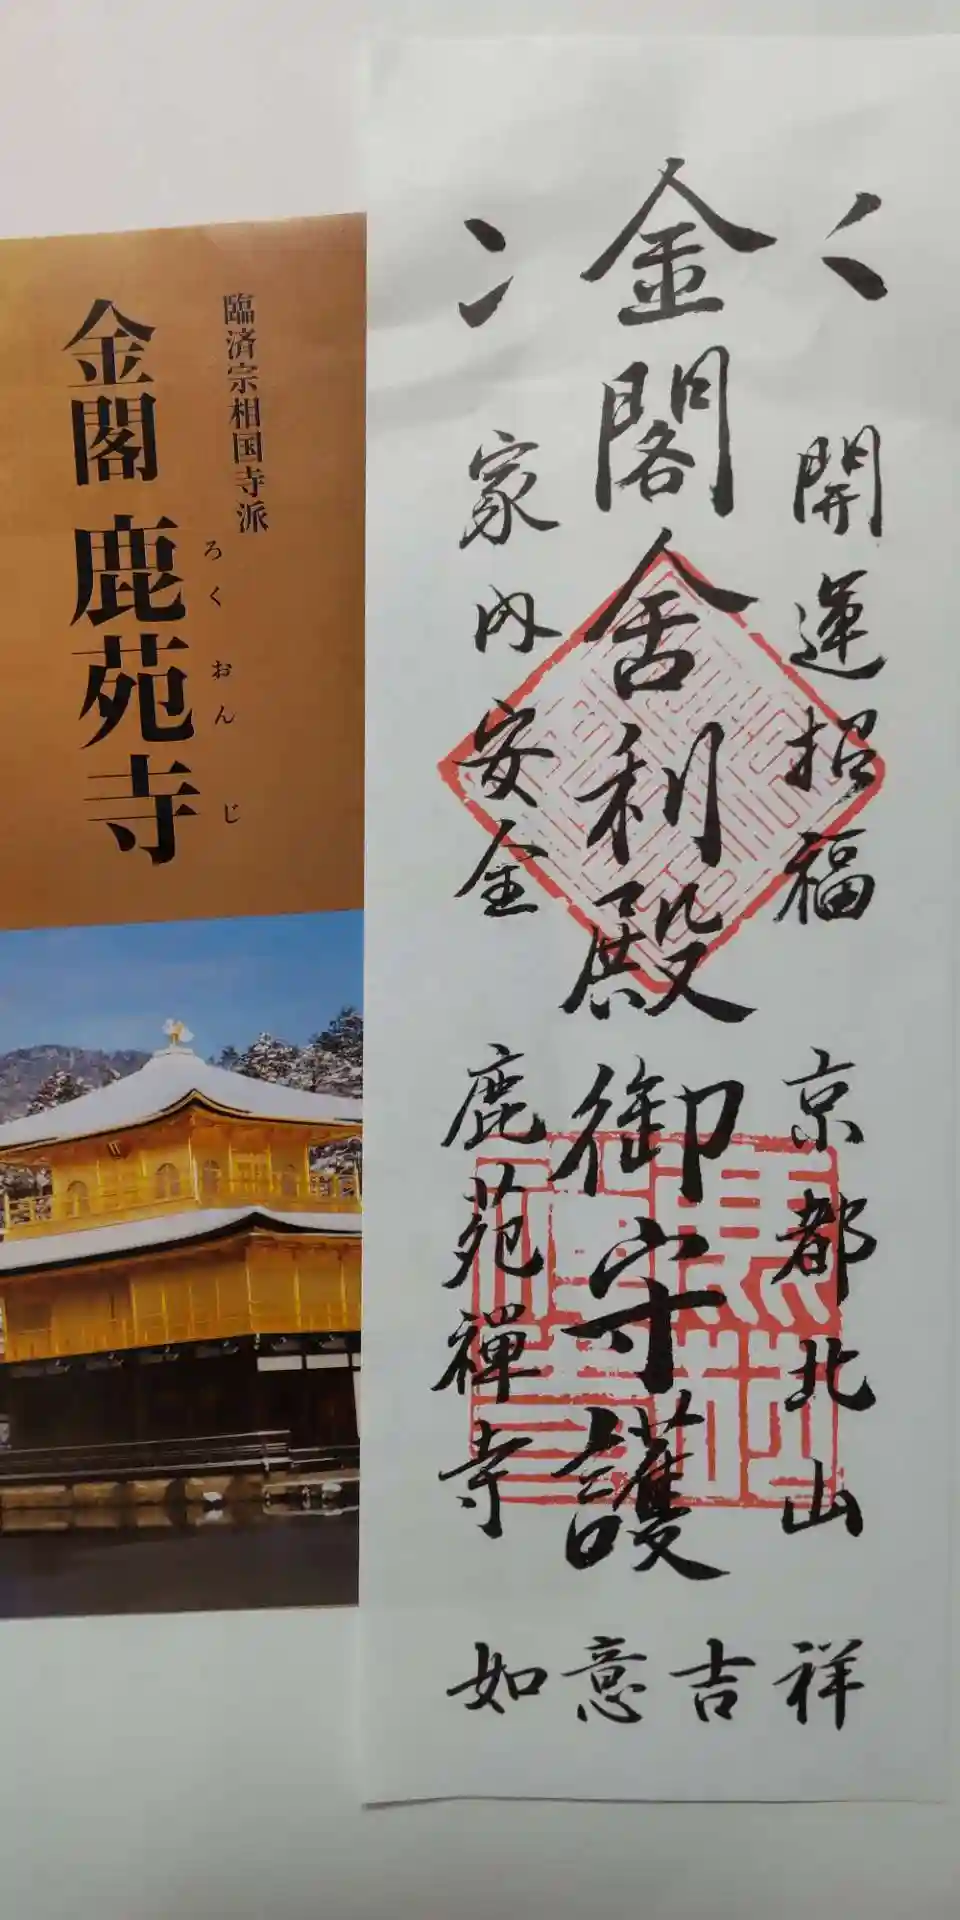 臨済宗相国寺派
金閣 鹿苑寺
ろくおんじ
開運招福 京都北山
金閣舎利殿御守護
家内安全 鹿苑禅寺
如意吉祥